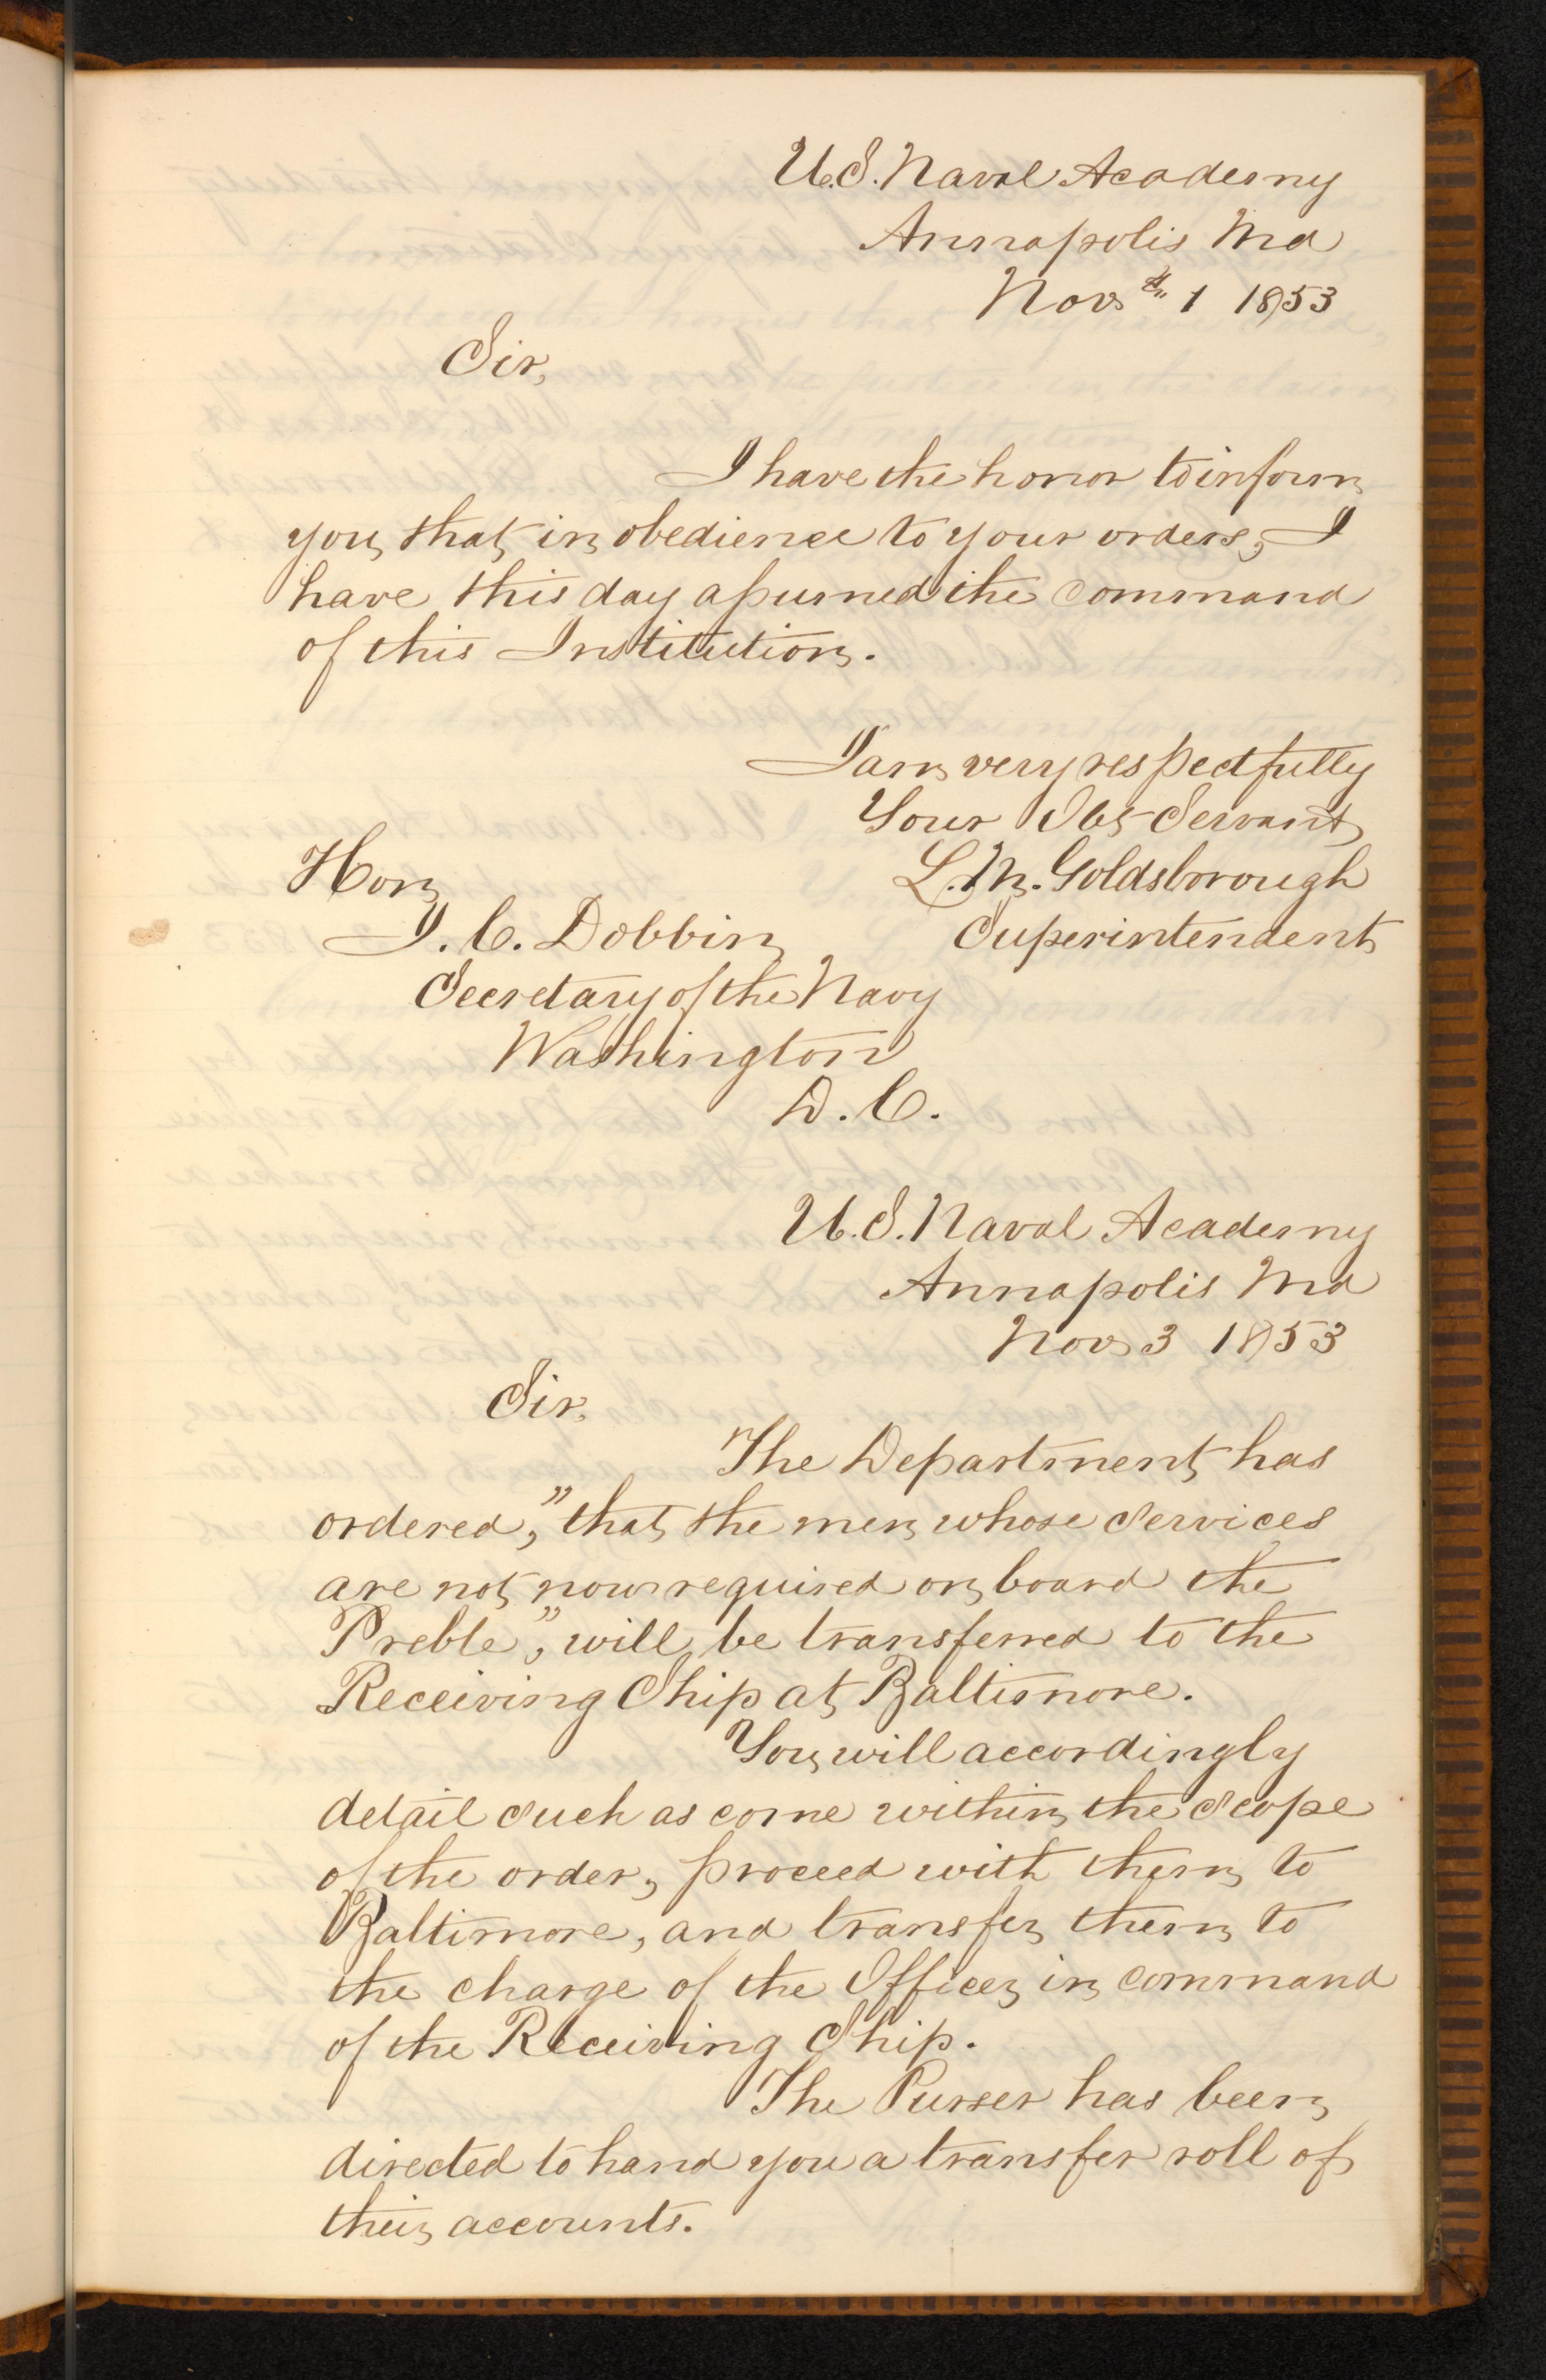 U.S. Naval Academy
Annapolis Md
Nov 1 1853
Sir,
I have the honor to inform
you that in obedience to your orders, I
have this day assumed the command
of this Institution.
I am very respectfully
Your Obt Servant
L. M. Goldsborough
Superintendent
Hon
J. C. Dobbin
Secretary of the Navy
Washington
D. C.
U. S. Naval Academy
Annapolis Md
Nov 3 1853
Sir,
The Department has
ordered, "that the men whose services
are not now required on board the
Preble," will be transferred to the
Receiving Ship at Baltimore.
You will accordingly
detail such as come within the scope
of the order, proceed with them to
Baltimore, and transfer them to
the charge of the Officer in command
of the Receiving Ship.
The Purser has been
directed to hand you a transfer roll of
their accounts.